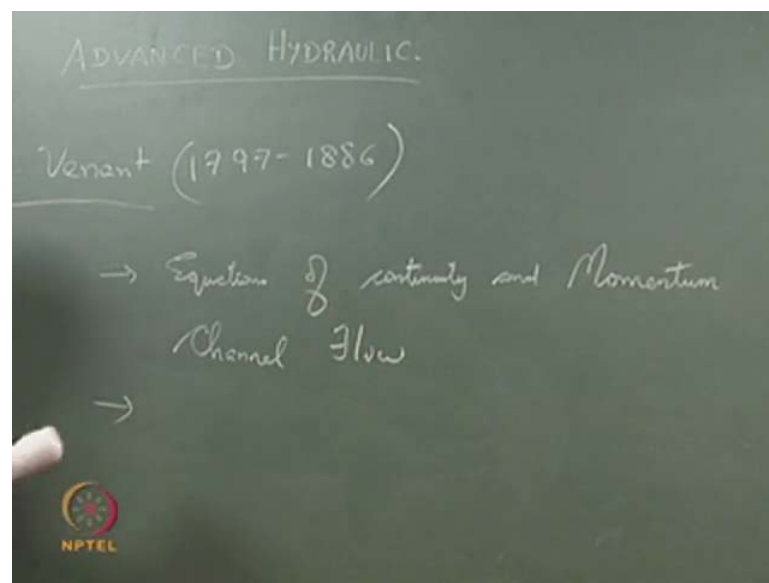 ADVANCED HYDRAULIC.
Venant (1797-1886)
→ Equations of continuity and Momentum
Channel Flow
→
NPTEL